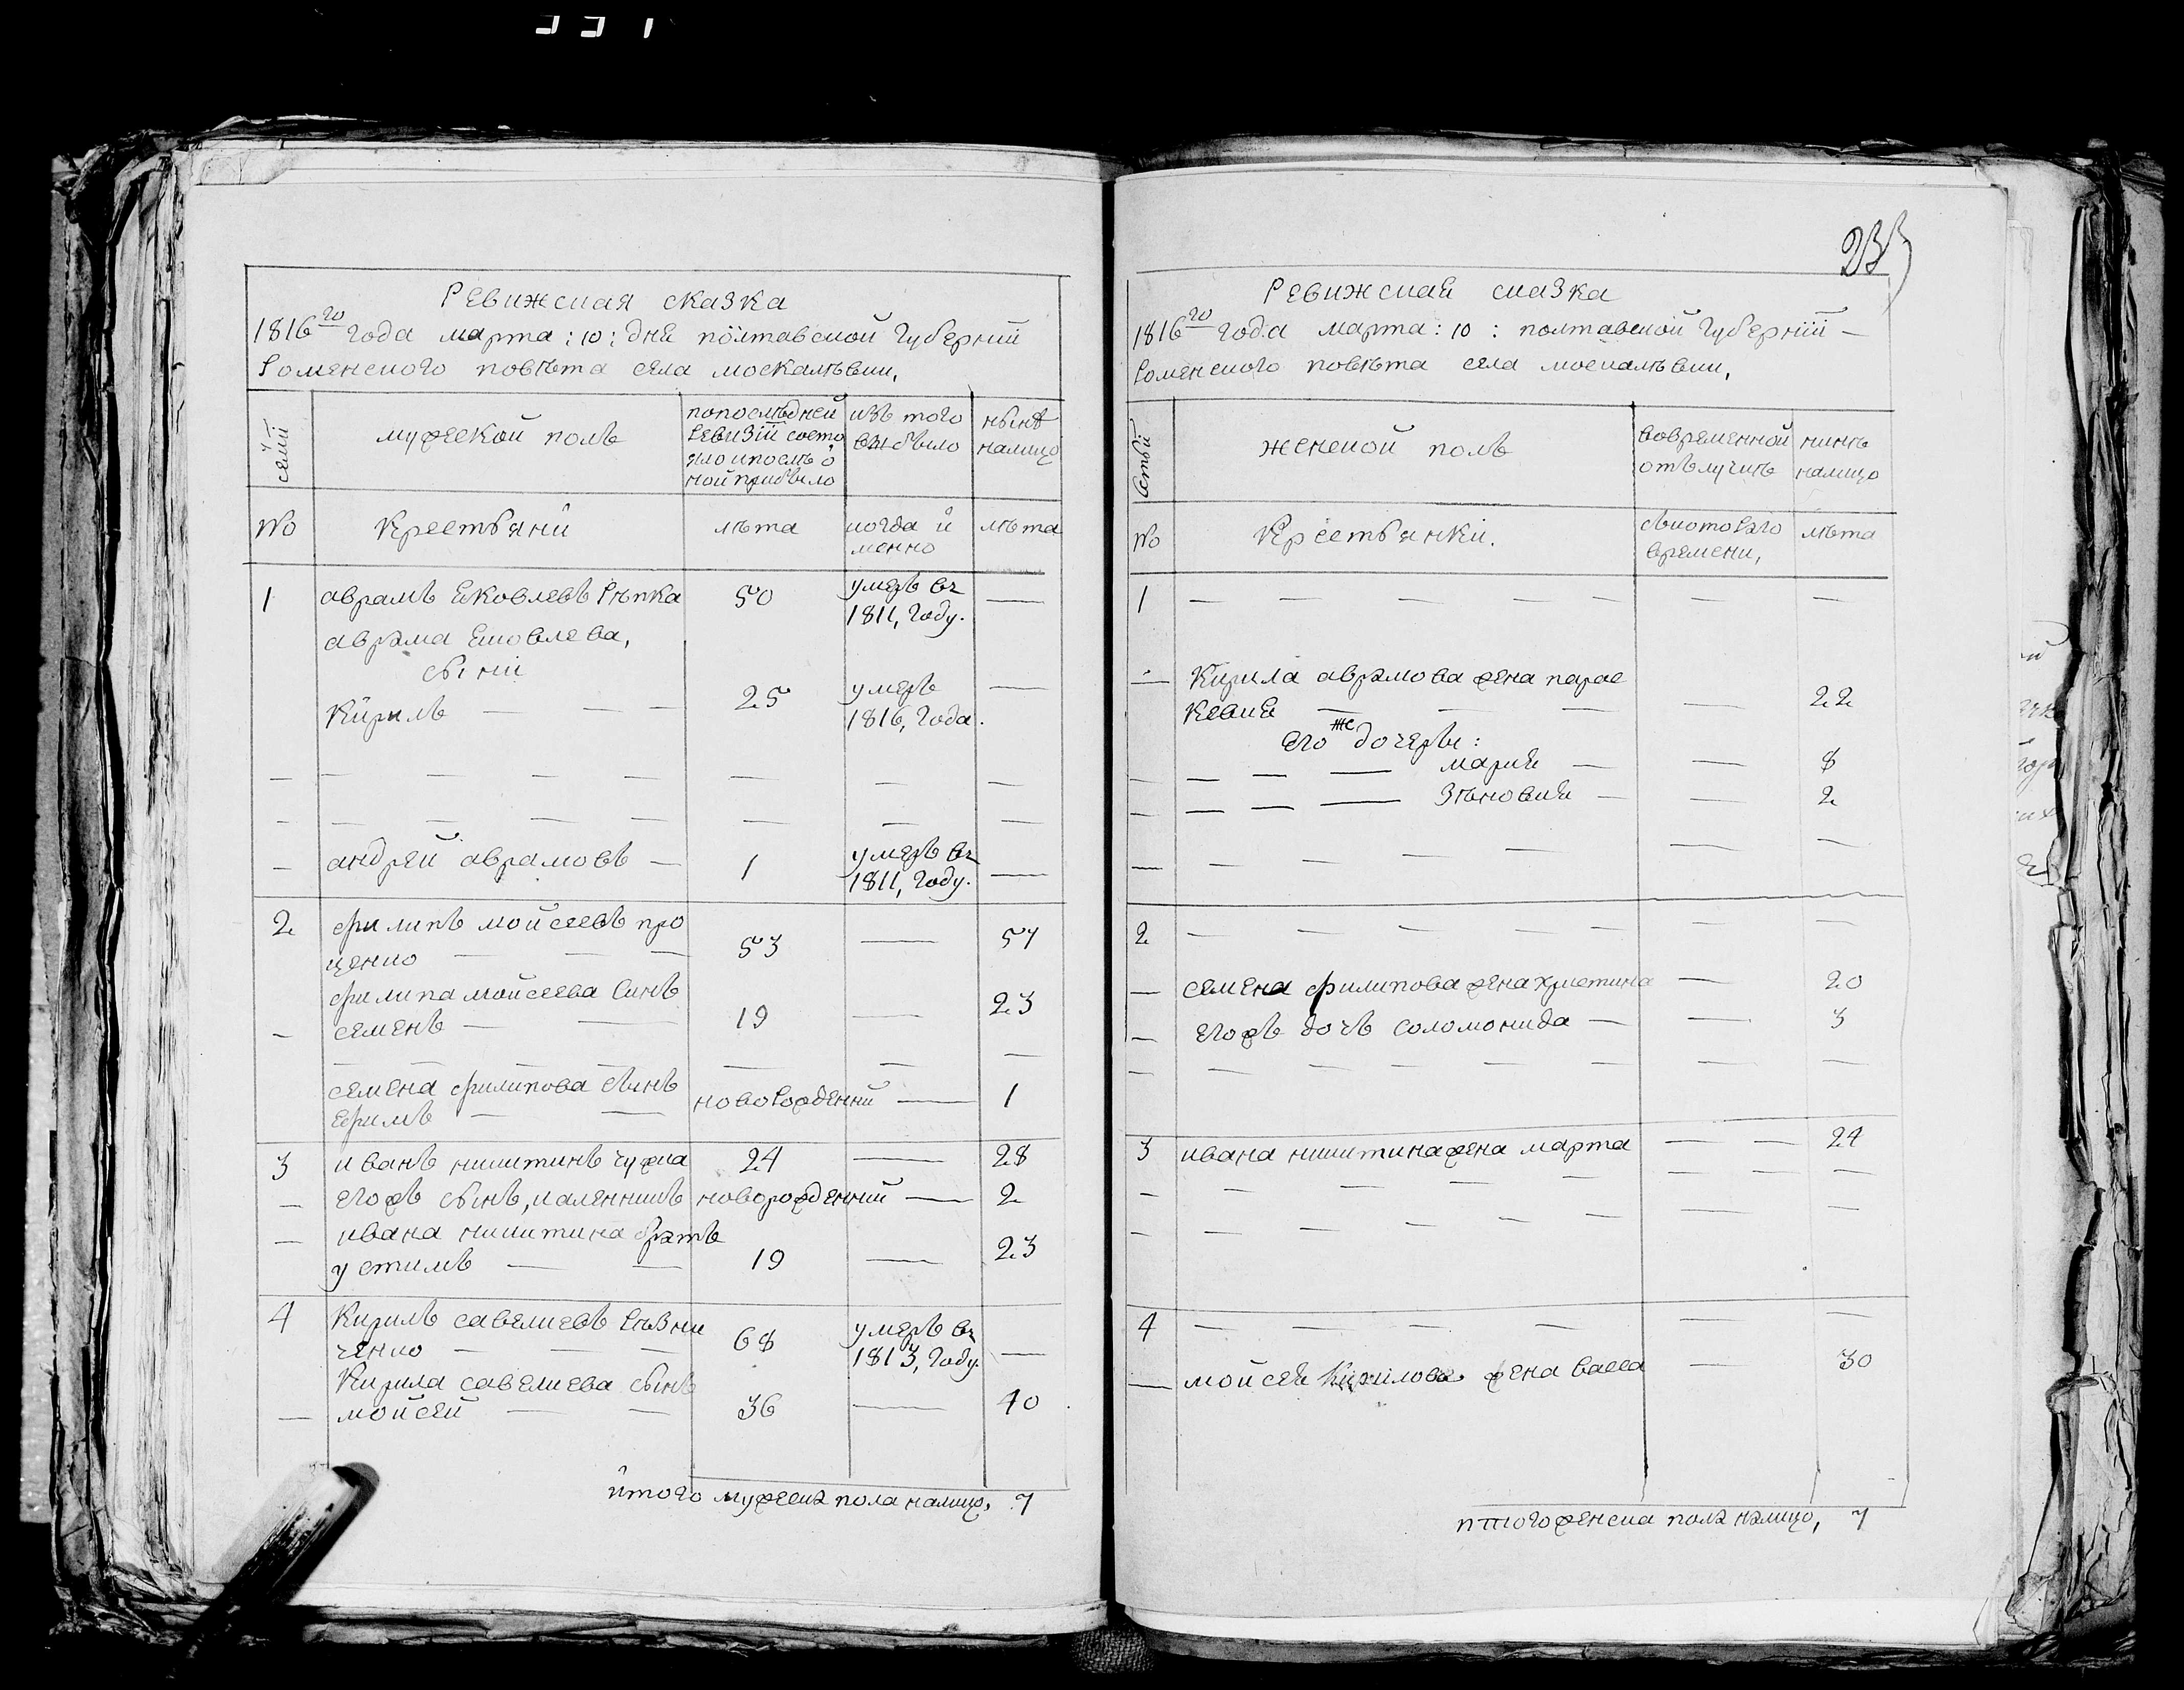 233
Ревижская сказка
1816го года марта : 10 : дня полтавской губернїй
Роменского повѣта села москалѣвки,
семїй
мужеской полъ
попослѣдней
Ревизїй состо
яло ипослѣ о
ной прибыло
изъ того
выбыло
нынѣ
налицо
No
Крестьяни
лѣта
когда и
менно
лѣта
1
аврамъ Яковлевъ Рѣпка
50
умеръ въ
1811, году.
—
аврама Яковлева,
сыни
Кирилъ — — —
25
умеръ
1816, года.
—
— андрей аврамовъ —
1
умеръ въ
1811, году.
—
2
филипъ мойсеевъ про
ценко — — —
53
—
57
филипа мойсеева синъ
— семенъ — —
19
—
23
семена филипова сынъ
Ефимъ — —
новорожденни —
1
3
иванъ никитинъ чужка
24
—
28
— егожъ сынъ, каленникъ
новорожденний —
2
— ивана никитина братъ
устимъ — —
19
—
23
4
Кирилъ савелиевъ Рѣзни
ченко — — —
68
умеръ въ
1813, году.
—
Кирила савелиева сынъ
— мойсей — —
36
—
40
итого мужеска пола налицо, 7
Ревижская сказка
1816го года марта : 10 : полтавской губернїй —
Роменского повѣта села москалѣвки,
женской полъ
вовременной
отълучкѣ
нинѣ
налицо
No
Крестьянки.
съкоторого
времени,
лѣта
1 — — — — — — —
— Кирила аврамова жена парас
кевия — — —
—
22
его же дочеры :
— — — — мария — — 8
— — — — Зѣновия — — 2
2 — — — — — — —
— семена филипова жена христина — 20
— егожъ дочъ соломонида — — 3
3 ивана никитина жена марта — — 24
4 — — — — — —
— мойсея Кирилова жена васса — 30
итого женска пола налицо, 7